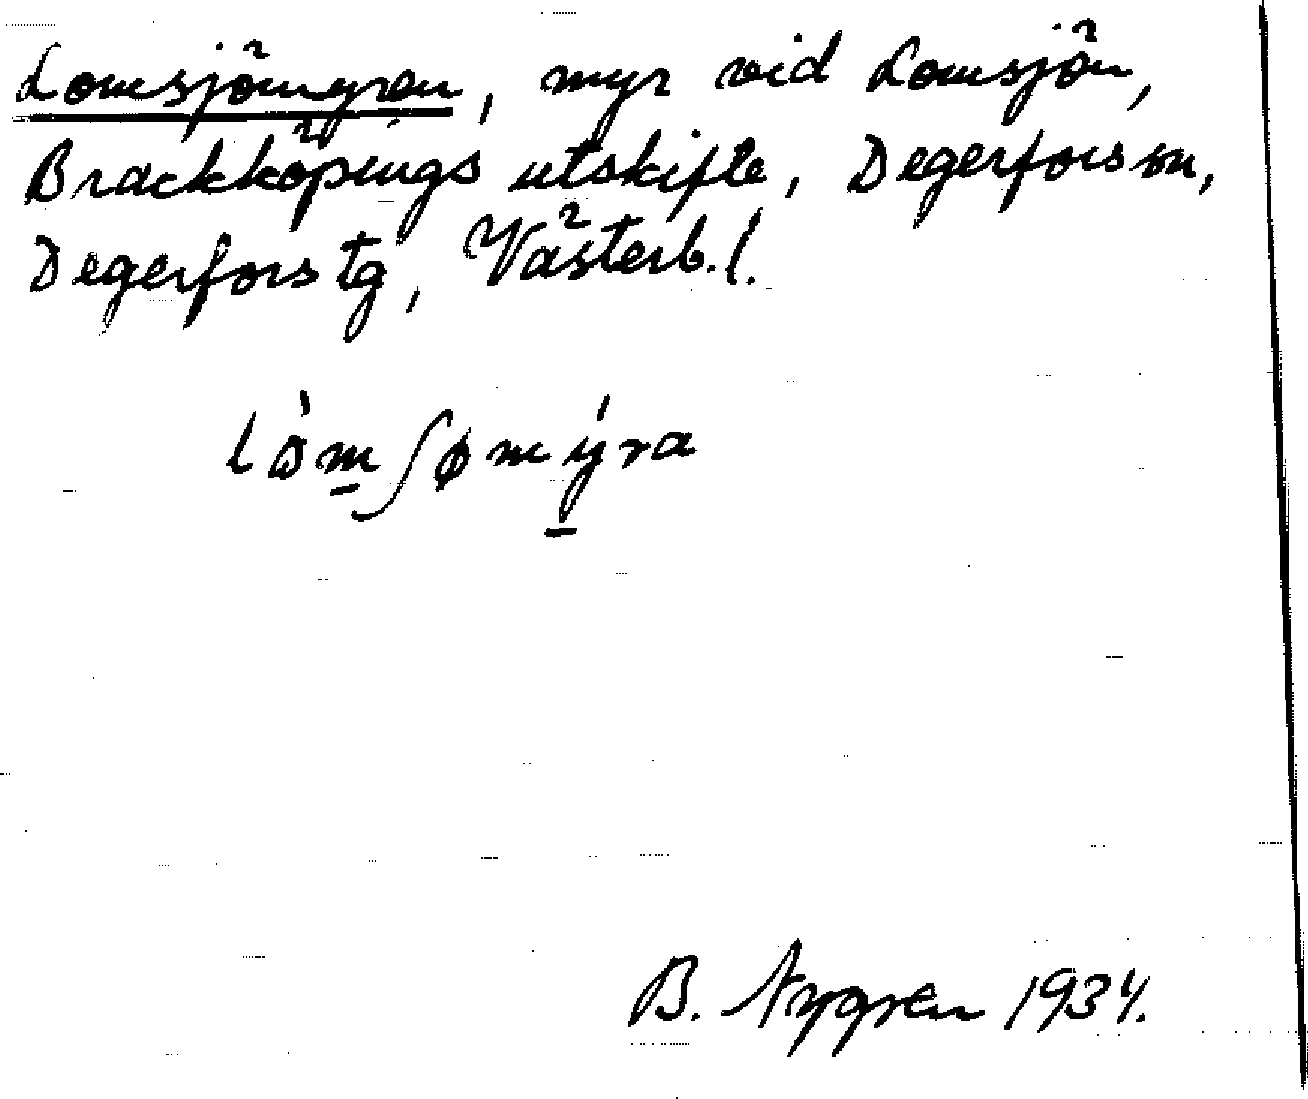 Lomsjömyran, myr vid Lomsjön,
Brackköpings utskifte, Degerfors sn,
Degerfors tg, Västerb. l.
lòmʃømýra
B. Nygren 1934.